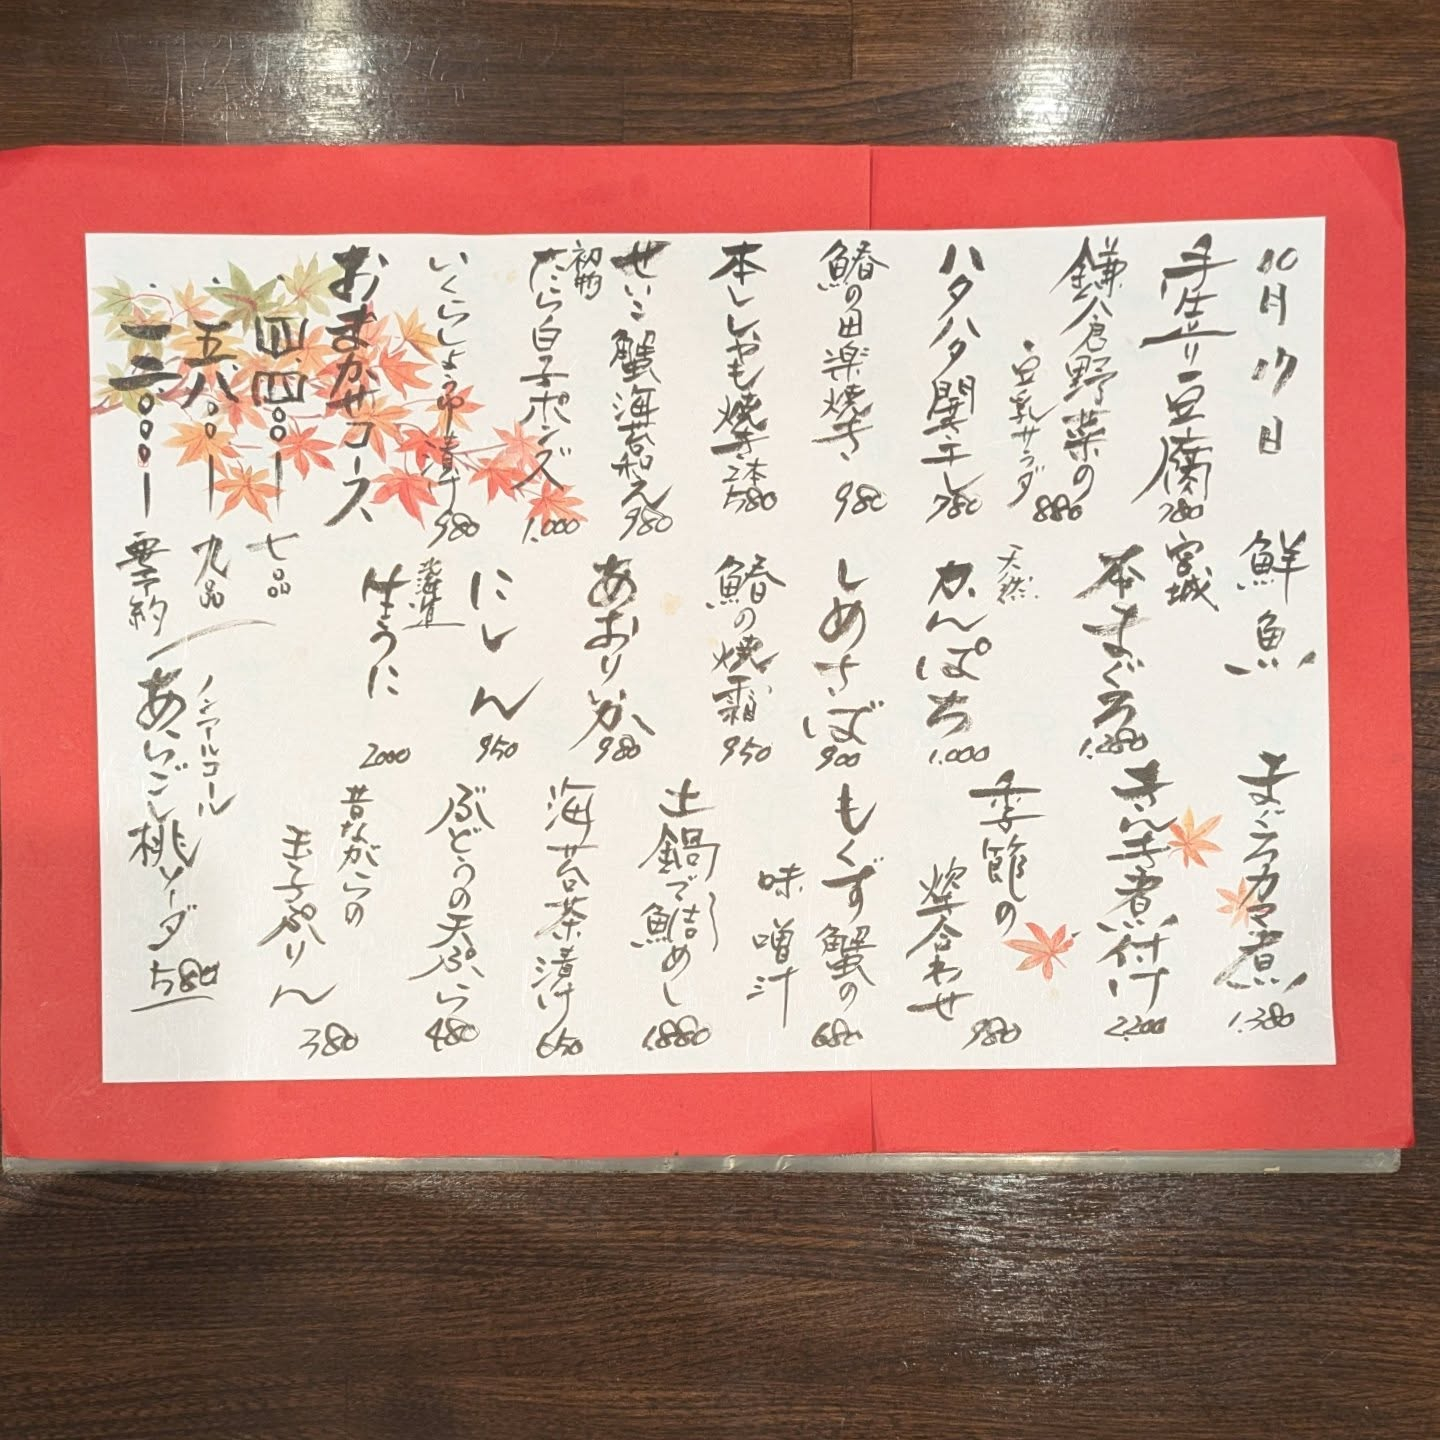 10月17日
手造り豆腐 780
鎌倉野菜の
豆乳サラダ 880
ハタハタ開干し 780
鰆の田楽焼き 980
本ししゃも焼き 2本 580
せいこ蟹海苔和え 980
初物
たら白子ポンズ 1.000
いくらしょう油漬け 980
おまかせコース
・四.四〇〇ー 七品
・五.八〇〇ー 九品
・一二.〇〇〇ー 要予約
鮮魚
宮城
本まぐろ 1.280
天然
かんぱち 1.000
しめさば 900
鰆の焼霜 950
あおりいか 980
にしん 950
北海道
生うに 2000
まぐろカマ煮 1.380
きんき煮付け 2.200
季節の
炊合わせ 980
もくず蟹の
味噌汁 680
土鍋で
鮭めし 1.880
海苔茶漬け 650
ぶどうの天ぷら 480
昔ながらの
玉子ぷりん 380
ノンアルコール
あらごし桃ソーダ 580